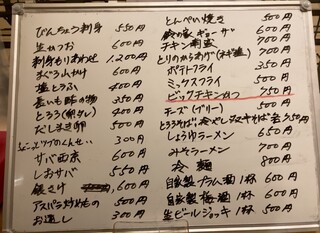 びんちょう刺身 550円
生かつお 600円
刺身もりあわせ 1,200円
まぐろ山かけ 600円
塩とうふ 400円
長いも酢の物 350円
とろろ(卵,タレ) 400円
だしまき卵 500円
300円
サバ西京 600円
しおサバ 550円
銀さけ 600円
アスパラ炒めもの 500円
お通し 300円
とんぺい焼き 500円
鈴の家ギョーザ 600円
チキン南蛮 700円
とりのからあげ(ネギ塩) 700円
ポテトフライ 350円
ミックスフライ 500円
ビックチキンかつ 750円
チーズ(ブリー) 500円
350円
しょうゆラーメン 650円
みそラーメン 700円
冷麺 800円
自家製プラム酒1杯 600円
自家製梅酒1杯 600円
生ビールジョッキ1杯 500円